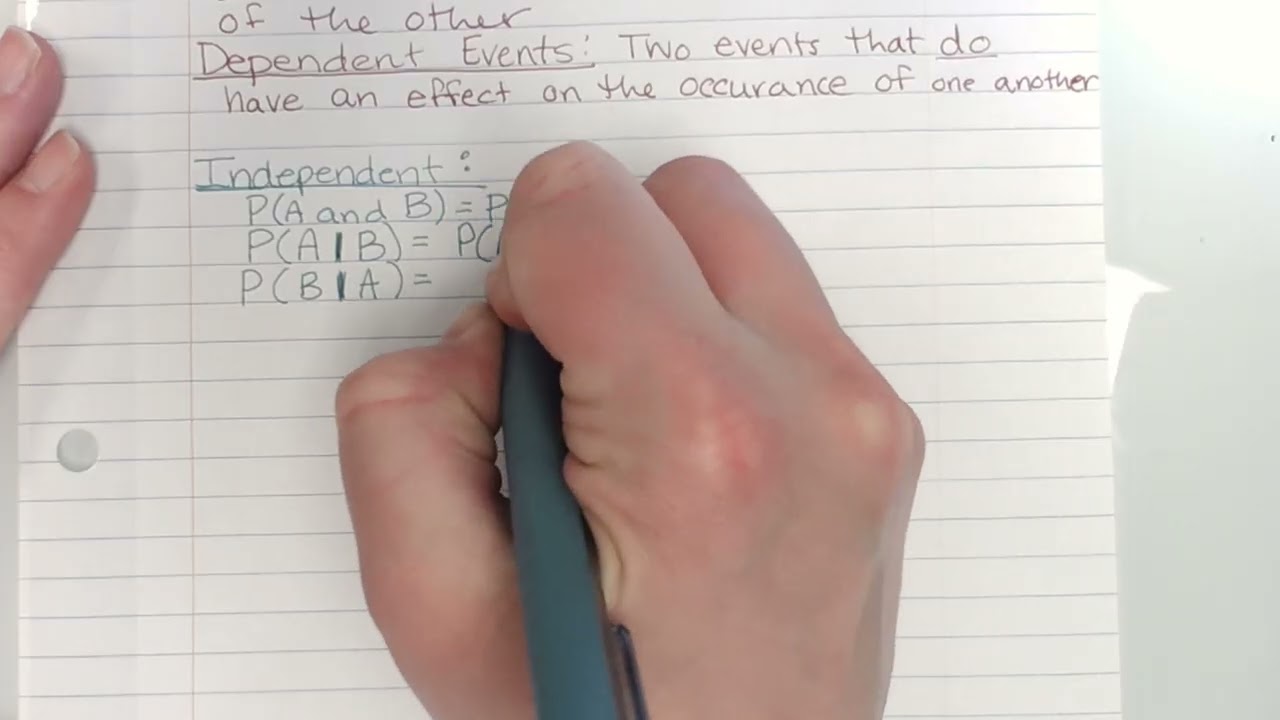 of the other
Dependent Events: Two events that do
have an effect on the occurance of one another
Independent:
P(A and B) = P
P(A | B) = P(
P(B | A) =